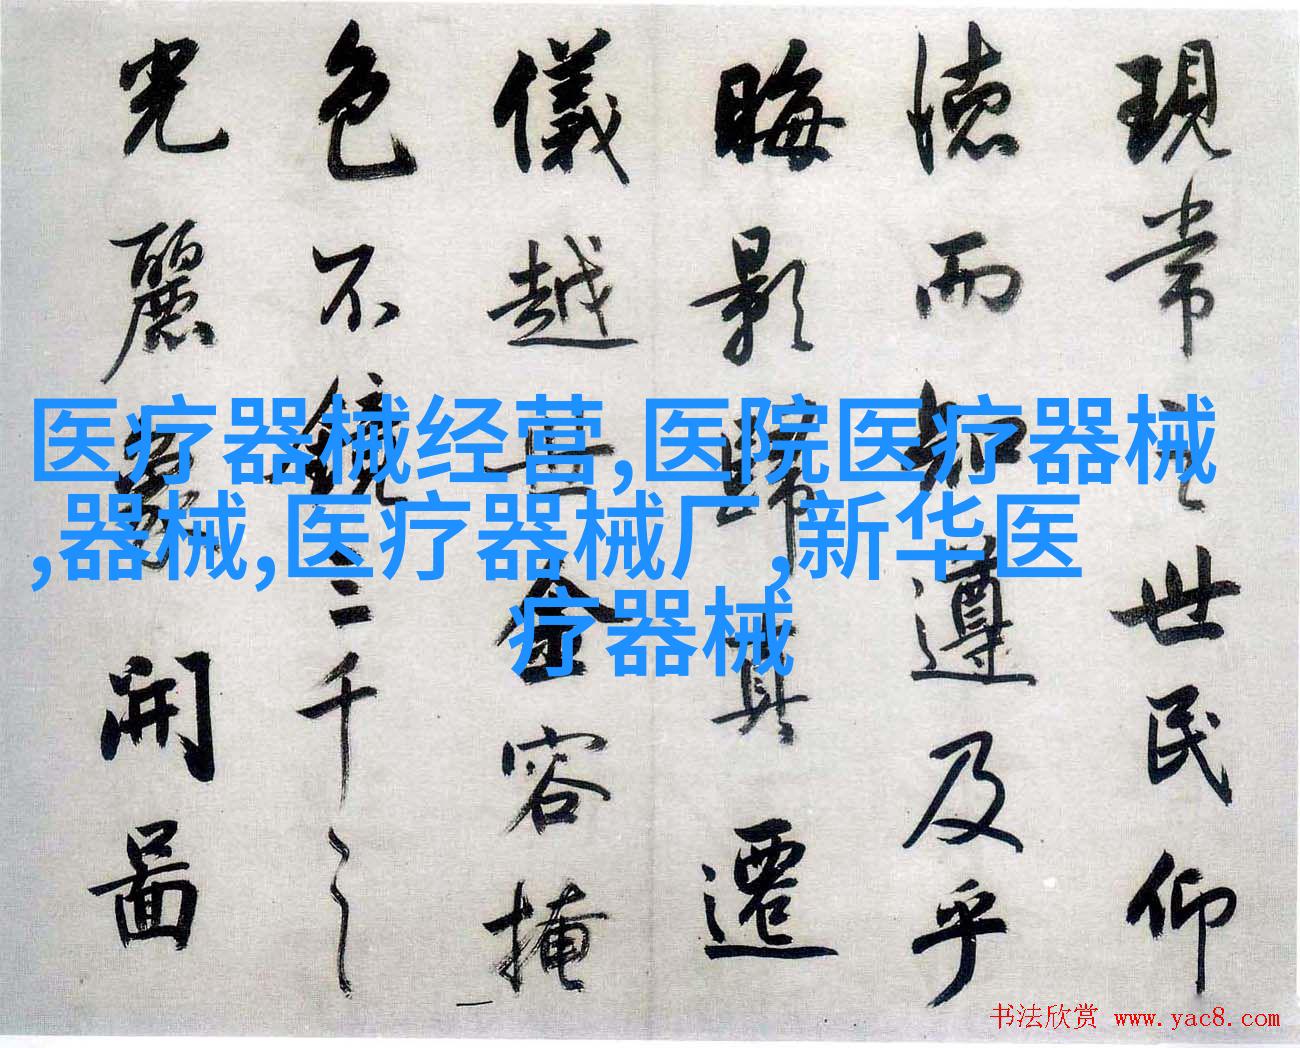 現常之世民仰
德而知遵及乎
晦影歸真遷
儀越世金容掩
色不鏡三千之
光麗象開圖
医疗器械经营,医院医疗器械
,器械,医疗器械厂,新华医
疗器械
书法欣赏 www.yac8.com